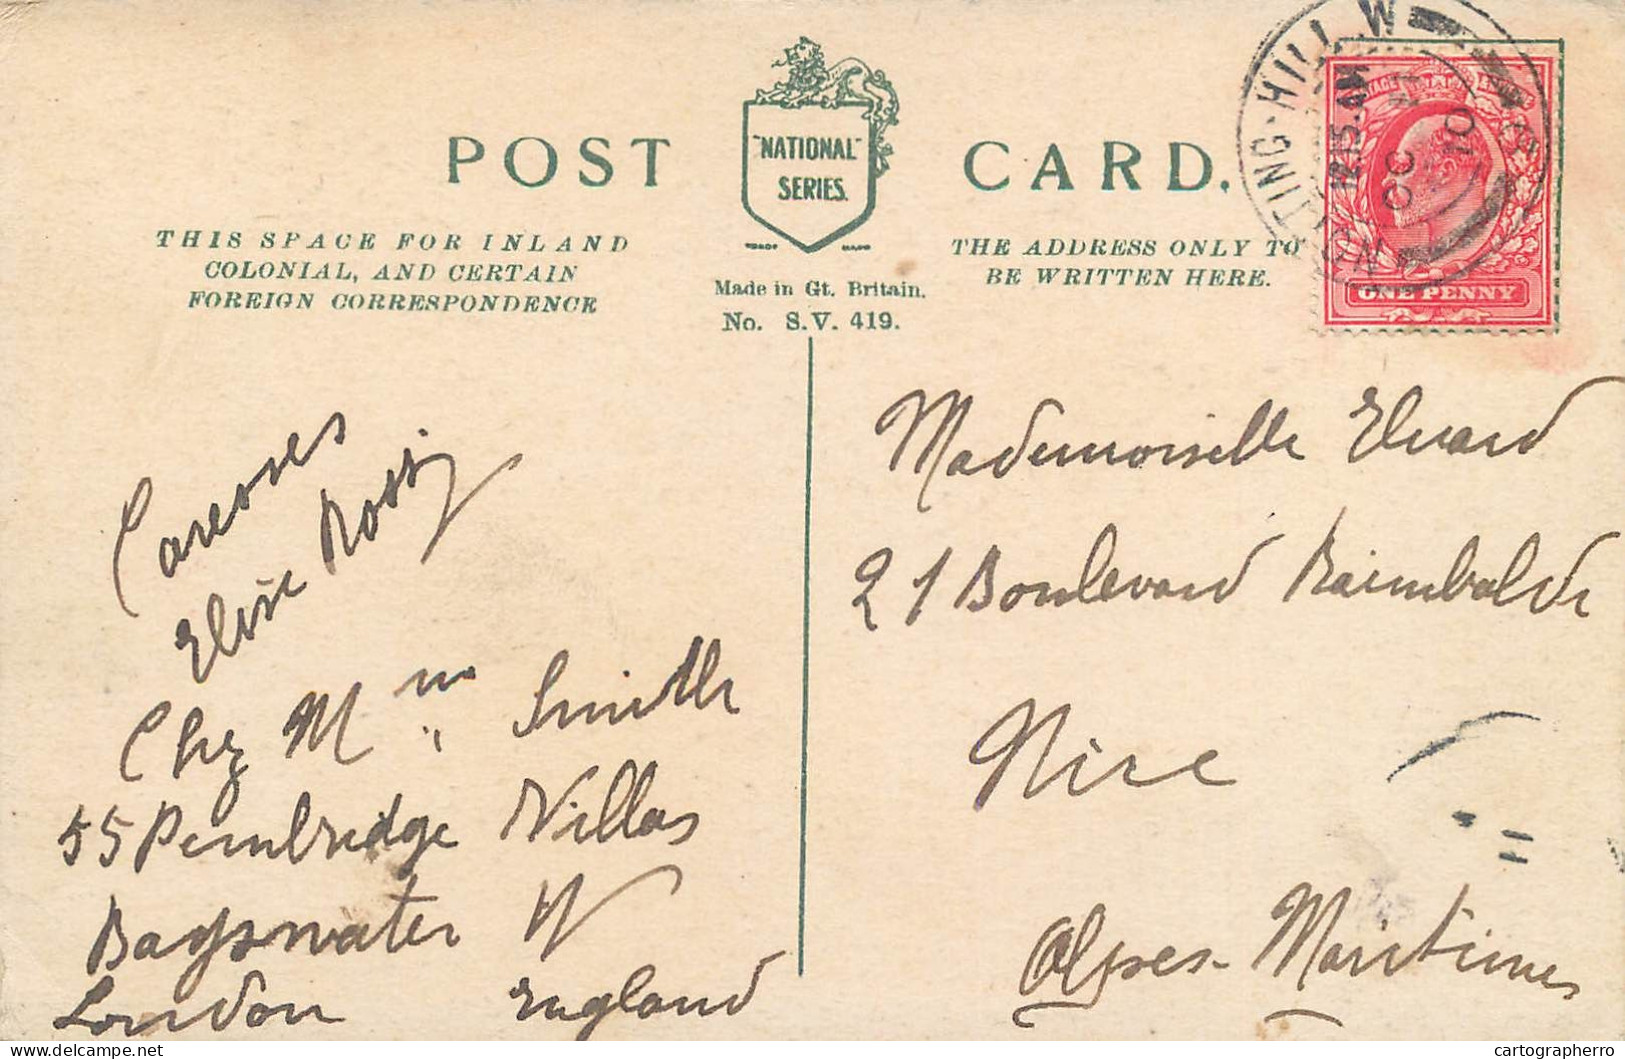 POST CARD.
"NATIONAL"
SERIES.
TRADE MARK
THIS SPACE FOR INLAND
COLONIAL, AND CERTAIN
FOREIGN CORRESPONDENCE
Made in Gt. Britain.
No. S.V. 419.
THE ADDRESS ONLY TO
BE WRITTEN HERE.
NOTTING-HILL.W
12.15.AM
OC
10
ONE PENNY
Caresses
Elise Rossi
Chez Mme Smith
55 Pembridge Villas
Bayswater W
London England
Mademoiselle Eluard
21 Boulevard Raimbaldi
Nice
Alpes-Maritimes
cartographerro